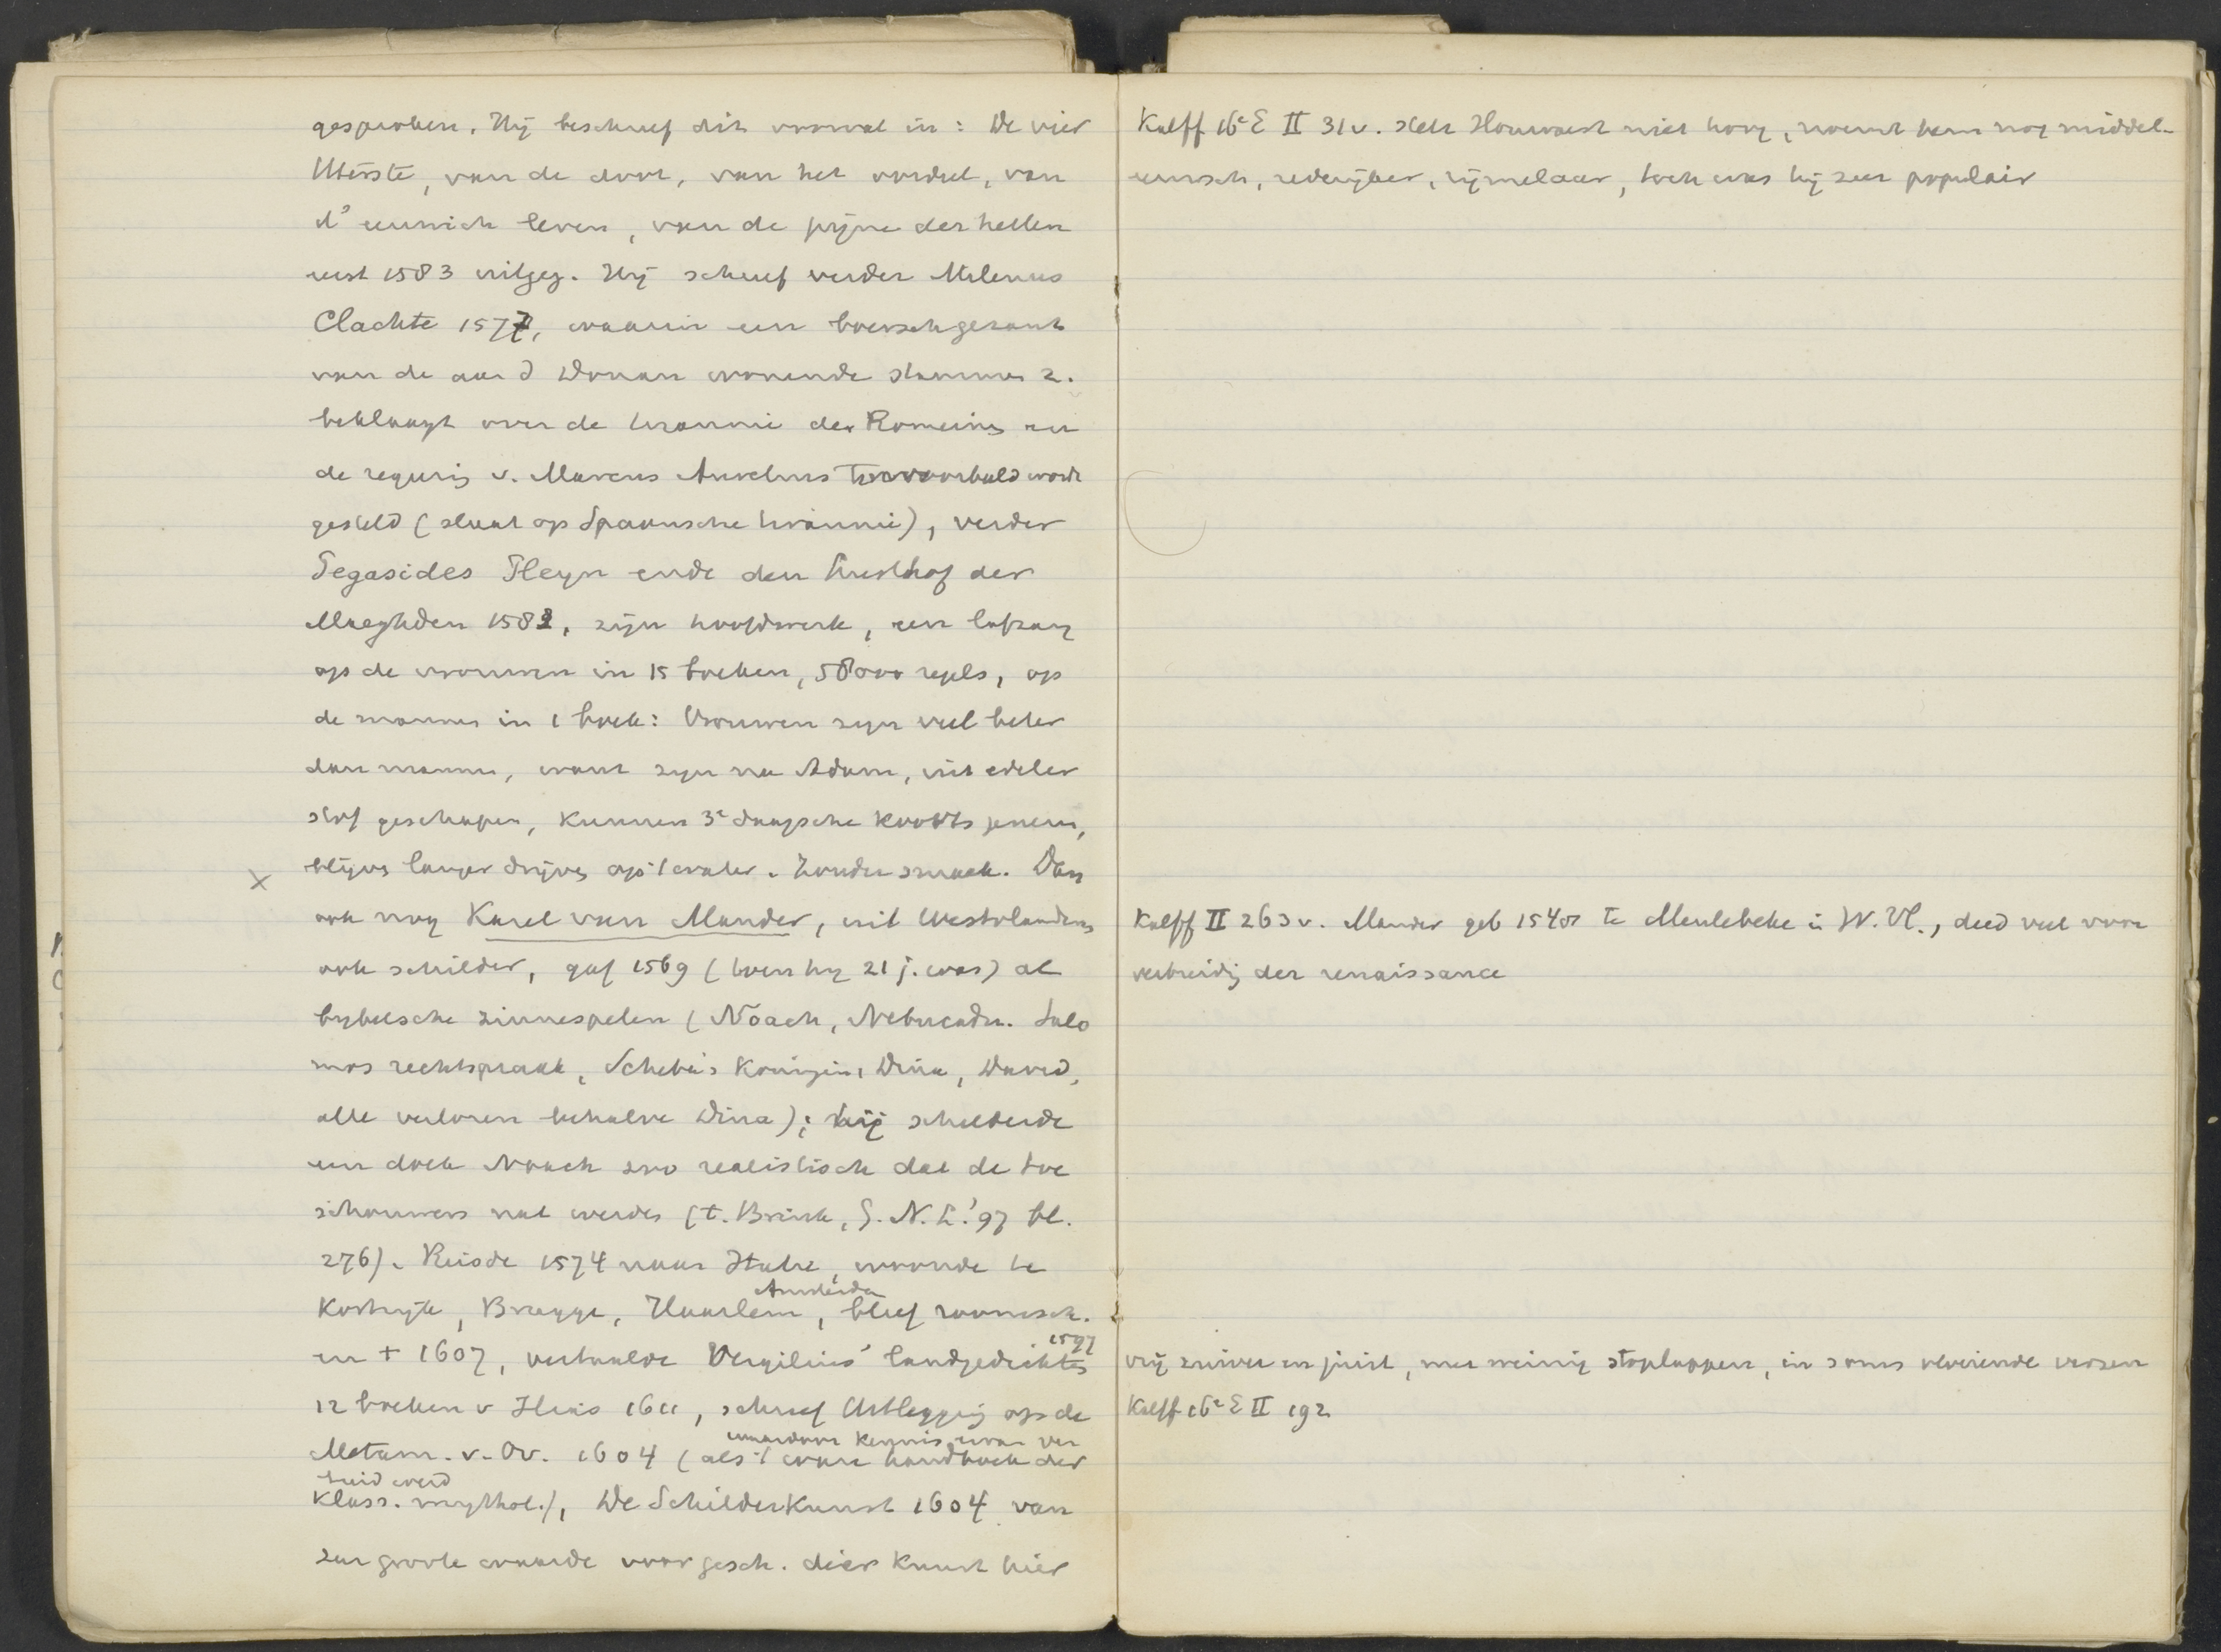 gesproken. Hij beschreef dit voorval in: De vier
Uterste, van de doot, van het oordeel, van
d'eeuwich leven, van de pijne der hellen
eerst 1583 uitgeg. Hij schreef verder Milenus
Clachte 1577, waarin een boersch gezant
van de aan d Donau wonende stammen z.
beklaagt over de tirannie der Romeinen en
de regeering v. Marcus Aurelius ten voorbeeld wordt
gesteld (slaat op Spaansche tirannie), verder
Pegasides Pleyn ende den Lusthof der
Maeghden 1582, zijn hoofdwerk, een lofzang
op de vrouwen in 15 boeken, 58000 regels, op
de mannen in 1 boek: Vrouwen zijn veel beter
dan mannen, want zijn na Adam, uit edeler
stof geschapen, kunnen 3e daagsche koorts genezen,
x blijven langer drijven op 't water. Zonder smaak. Dan
ook nog Karel van Mander, uit Westvlaanderen
ook schilder, gaf 1569 (toen hij 21 j. was) al
bijbelsche zinnespelen (Nöach, Nebucadn. Salo
mos rechtspraak, Scheba's Koningin, Dina, David,
alle verloren behalve Dina); hij schilderde
een doek Noach zoo realistisch dat de toe
schouwers nat werden (t. Brink, G. N. L. '97 bl.
276). Reisde 1574 naar Italië, woonde te
Kortrijk, Brugge, Haarlem, Amsterdam, bleef roomsch.
en + 1607, vertaalde Vergilius' landgedichten 1597
12 boeken v Ilias 1611, schreef Uitlegging op de
Metam. v. Ov. 1604 (als 't ware handboek der
waardoor kennis ervan ver
breid werd
klass. mythol.), De Schilderkunst 1604 van
zeer groote waarde voor gesch. dier kunst hier
Kalff 16e E II 31v. stelt Houwaert niet hoog, noemt hem nog middel-
eeuwsch, rederijker, rijmelaar, toch was hij zeer populair
Kalff II 263v. Mander geb 1548 te Meulebeke in W. Vl., deed veel voor
verbreiding der renaissance
vrij zuiver en juist, met weinig stoplappen, in soms vloeiende verzen
Kalff 16e E II 192